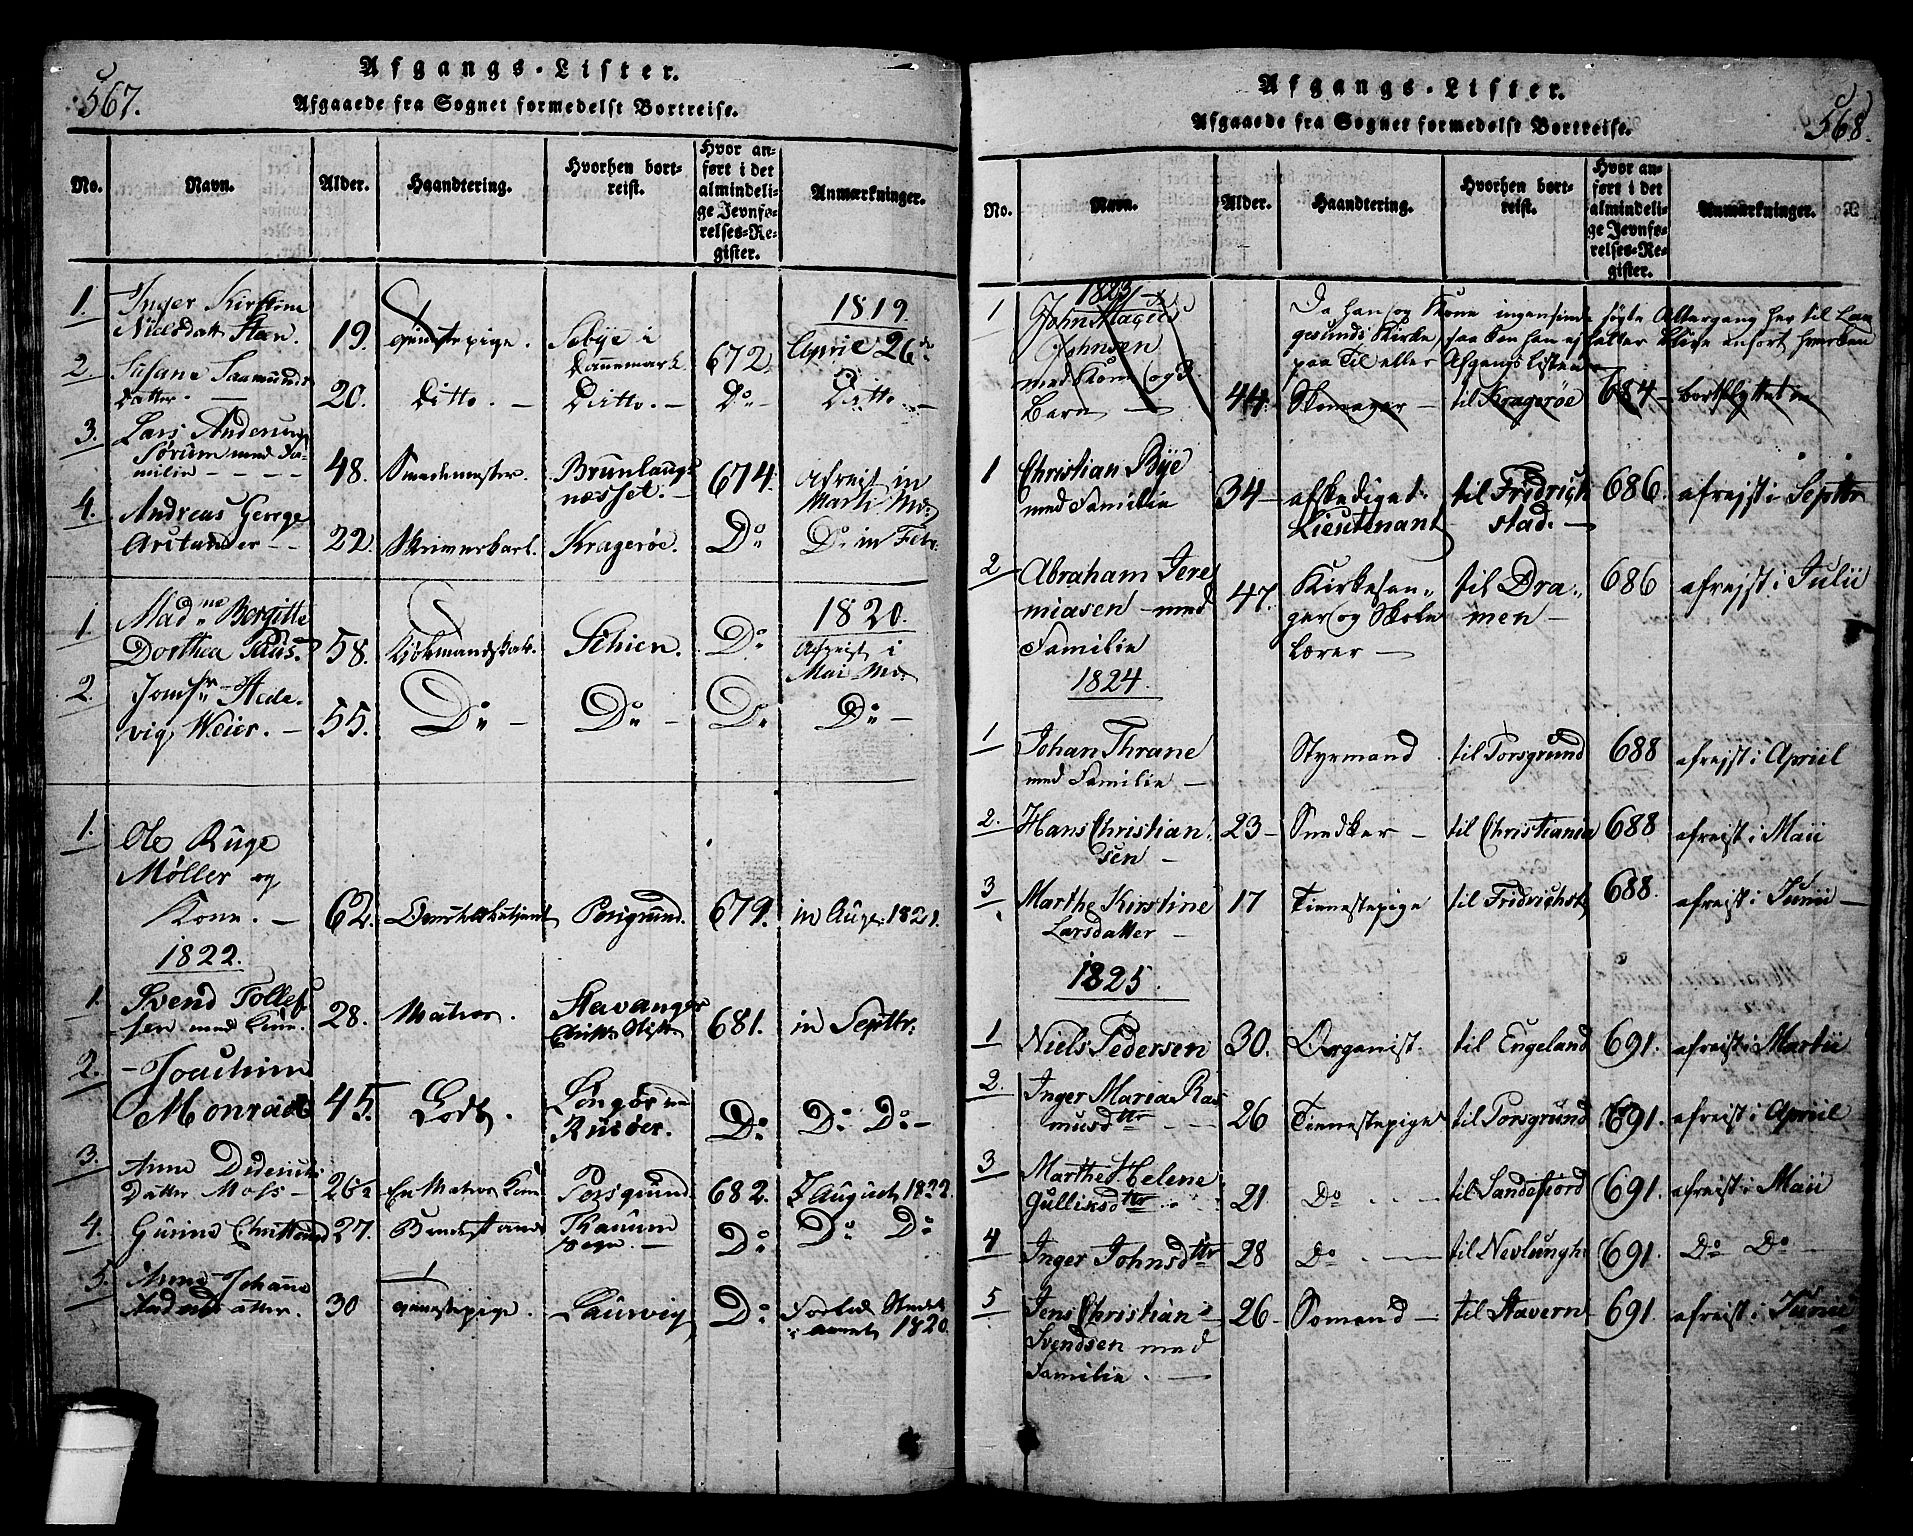 567.
Afgangs-Lister.
Afgaaede fra Sognet formedelst Bortreise.
No.
Navn.
Alder.
Haandtering.
Hvorhen bort-
reist.
Hvor an-
ført i det
almindeli-
ge Jevnfø-
relses-Re-
gister.
Anmærkninger.
1. Inger Kirstine
Nielsdatt. Steen. 19. Tjenestepige. Sebye i
Dannemark 672. 1819.
April 26de
2. Susane Saamunds
Datter. — 20. Ditto. — Ditto. — Do — Ditto —
3. Lars Andersen
Sørum med Fa-
milie - - - - 48. Smedemester. Brunlaug-
næsset. — 674. afreist in
Marti Mo:
4. Andreas George
- - 22. Kragerøe. Do Do in Febr.
1820.
1 Madme Bergitte
Dorthea Paus. 58. Schien. Do Afreist i
Mai Mo.
2. Jomfr Hede-
vig Weier. — 55. Do — Do — Do Do —
1. Ole Ruge
Møller og
Kone. — 62. Porsgrund. 679. in Aug. 1821.
1822.
1. Svend Tollef-
sen med Kone. 28. Matros. Stavanger
681. in Septbr.
2. Joachim
Monrad 45. Lods.
Do Do Do —
3. Anne
Datter Moss — 26 En Matros Kone Porsgrund 682. August 1822.
4. 27. Do Do Do
5. Anne Johanne
30 Tjenestepige. Laurvig Do
1820.
568.
Afgangs-Lister.
Afgaaede fra Sognet formedelst Bortreise.
No.
Navn.
Alder.
Haandtering.
Hvorhen bort-
reist.
Hvor an-
ført i det
almindeli-
ge Jevnfø-
relses-Re-
gister.
Anmærkninger.
1823
Da han og Kone ingensinde søgte Altergang her til Lan-
gesunds Kirke, saa kan han ej heller blive anført hverken
paa Til eller Afgangs Listen
1 John
Johnsen
med Kone og 3
Børn — 44. Skomager — til Kragerøe 684 — bortflyttet
1 Christian Bye
med Familie 34 — afskediget
Lieutenant til Fridrich
stad. — 686. afrejst i Septbr
2 Abraham Jere
miasen — med
Familie 47. Kirkesan-
ger og Skole
Lærer — til Dra-
men — 686 afrejst i Julii
1824.
1 Johan Thrane
med Familie — Styrmand til Porsgrund 688 afrejst i Apriil
2. Hans Christian
sen — 23 — Snedker — til Christiania 688 afreist i Maii
3 Marthe Kirstine
Larsdatter — 17 Tienestepige til Fridrichst. 688. afreist i Junii —
1825.
1 Niels Pedersen 30. Organist. til Engeland 691. afreist i Martii
2. Inger Maria Ras
musdttr - - 26 Tienestepige til Porsgrund 691. afreist i Apriil
3 Marthe Helene
Gulliksdttr 21 Do - - — til Sandefiord 691. afreist i Maii
4 Inger Johnsdttr 28 Do - — til Nevlungh. 691. Do Do —
5 Jens Christian
Svendsen med
Familie. — 26 — Sømand — til Stavern 691. afreist i Junii